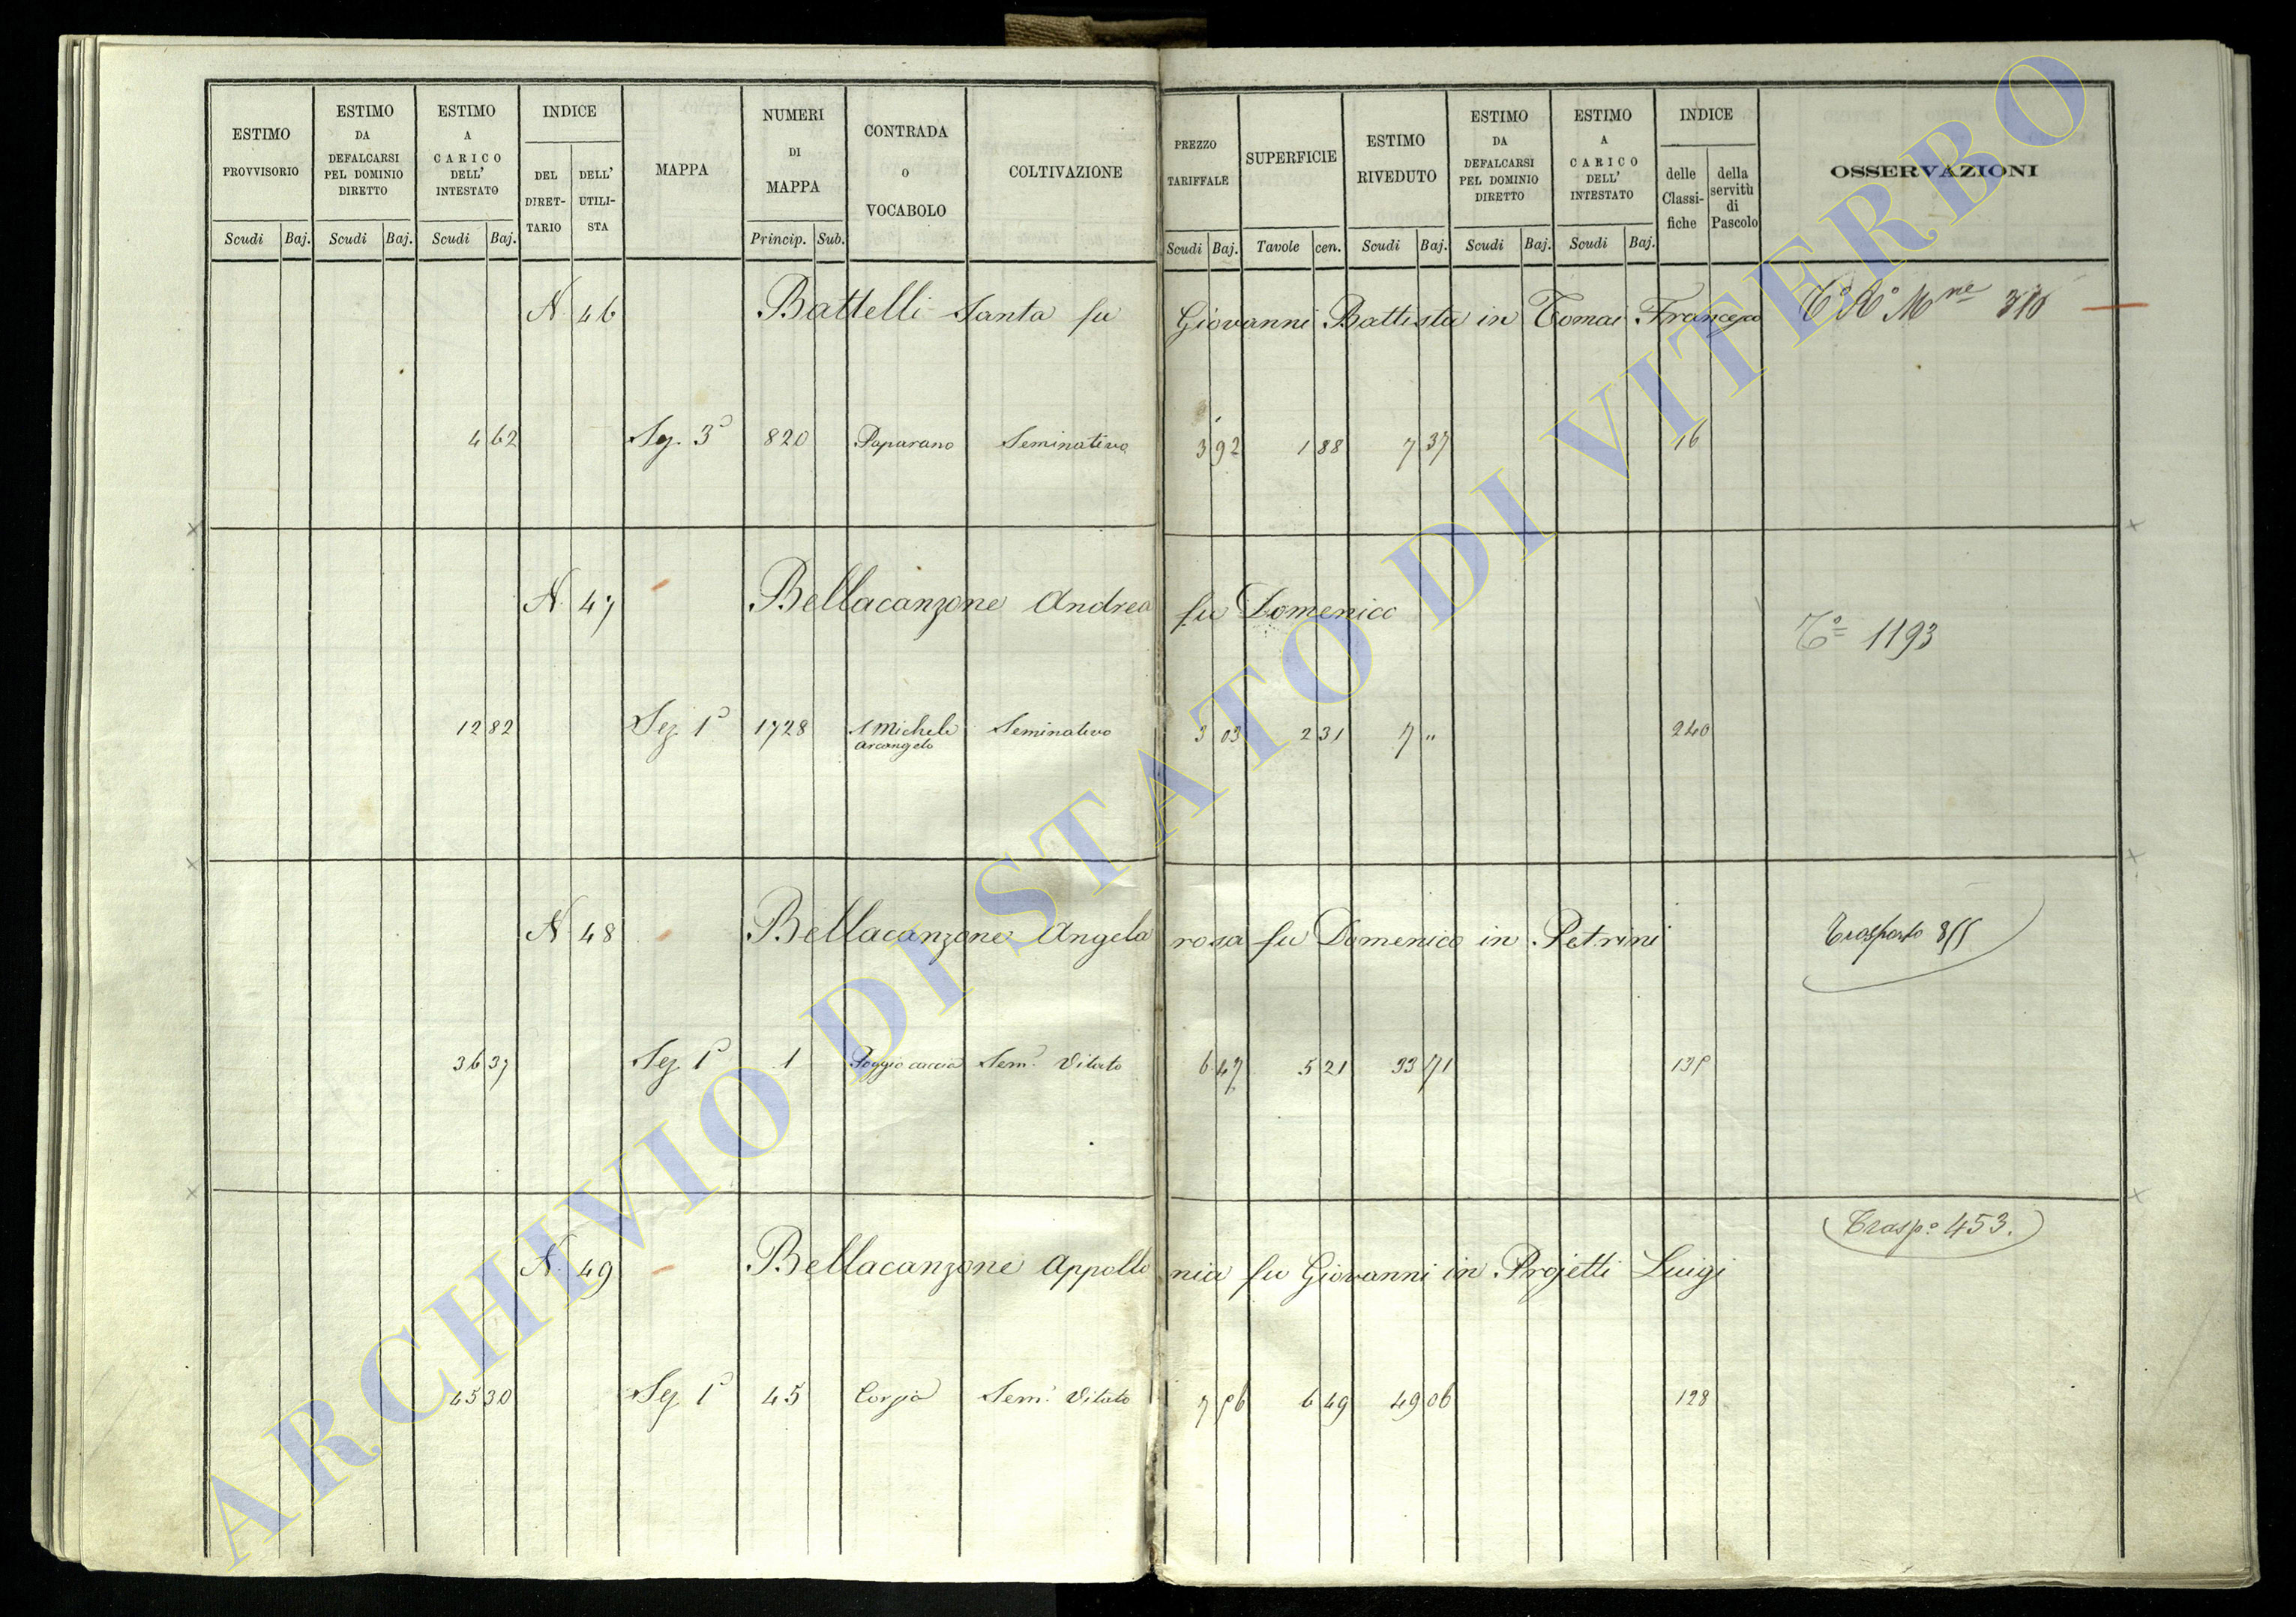 ESTIMO PROVVISORIO
Scudi Baj.
ESTIMO DA DEFALCARSI PEL DOMINIO DIRETTO
Scudi Baj.
ESTIMO A CARICO DELL' INTESTATO
Scudi Baj.
INDICE
DEL DIRET-TARIO
DELL' UTILI-STA
MAPPA
NUMERI DI MAPPA
Princip. Sub.
CONTRADA O VOCABOLO
COLTIVAZIONE
PREZZO TARIFFALE
Scudi Baj.
SUPERFICIE
Tavole cen.
ESTIMO RIVEDUTO
Scudi Baj.
ESTIMO DA DEFALCARSI PEL DOMINIO DIRETTO
Scudi Baj.
ESTIMO A CARICO DELL' INTESTATO
Scudi Baj.
INDICE
delle Classi-fiche
della servitù di Pascolo
OSSERVAZIONI
N. 46 Battelli Santa fu Giovanni Battista in Tomai Francesco
4 62 Sez. 3ª 820 Paparano Seminativo 3 92 1 88 7 37 16
N. 47 Bellacanzone Andrea fu Domenico Tº 1193
12 82 Sez. 1ª 1728 S Michele Arcangelo Seminativo 3 03 2 31 7 " 240
N 48 Bellacanzone Angela rosa fu Domenico in Petrini Trasporto 855
36 37 Sez. 1ª 1 Poggio caccia Sem. Vitato 6 47 5 21 33 71
Trasp.º 453.
N. 49 Bellacanzone Appollo nia fu Giovanni in Projetti Luigi
45 30 Sez. 1ª 45 Sem. Vitato 7 56 6 49 49 06 128
ARCHIVIO DI STATO DI VITERBO